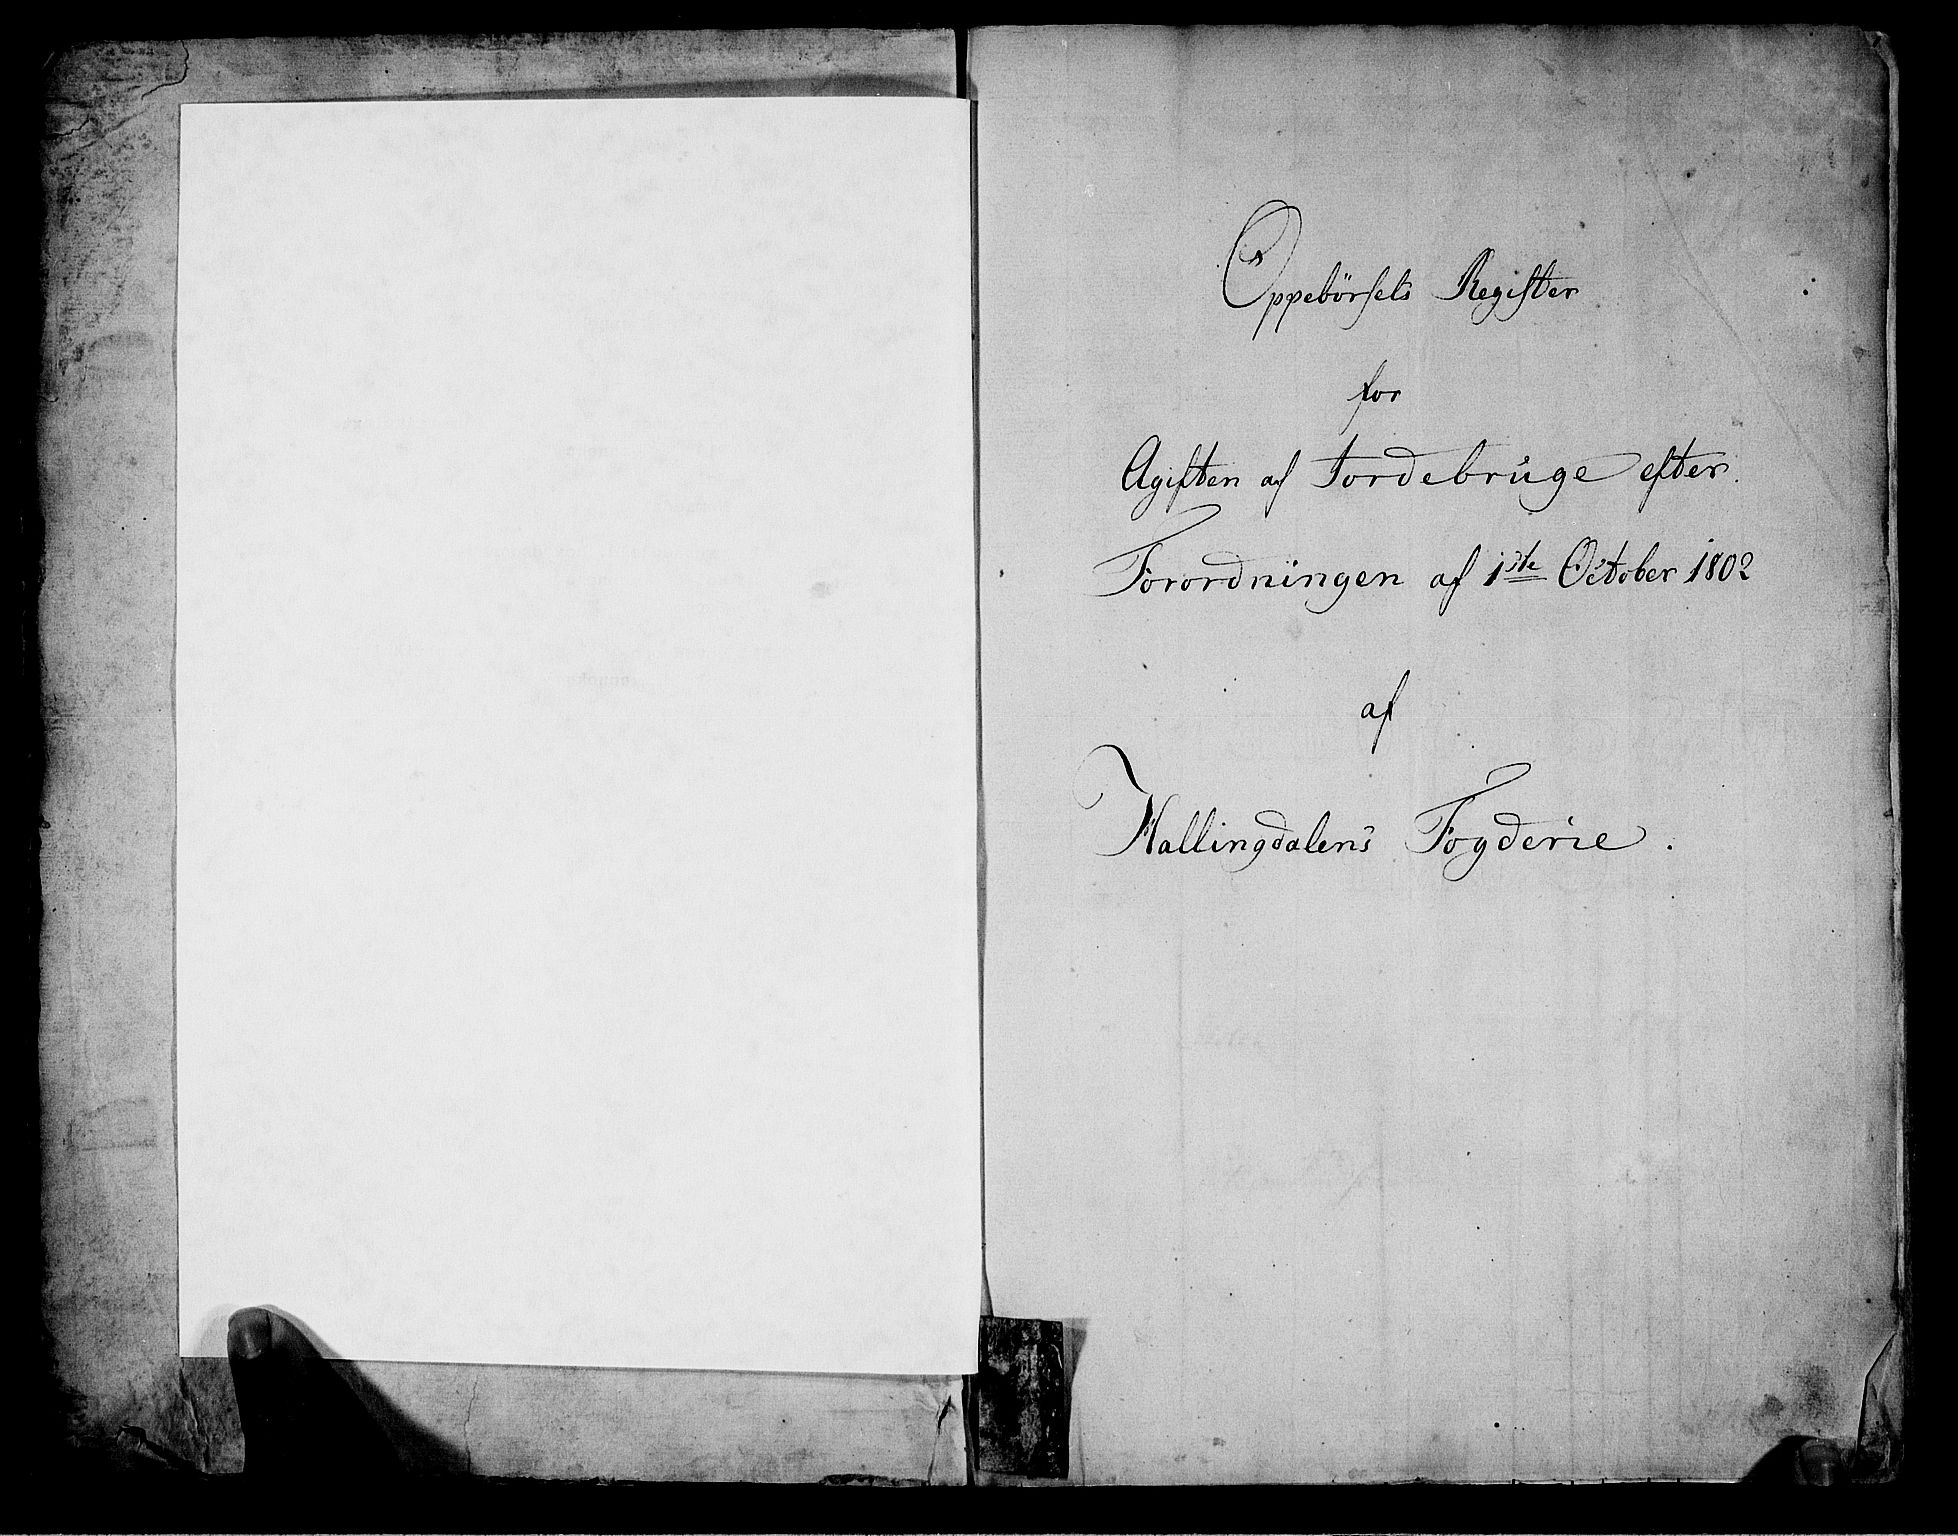 Oppebörsels Register
for
Agiften af Jordebrúge efter
Forordningen af 1ste October 1802
af
Hallingdalens Fogderie.